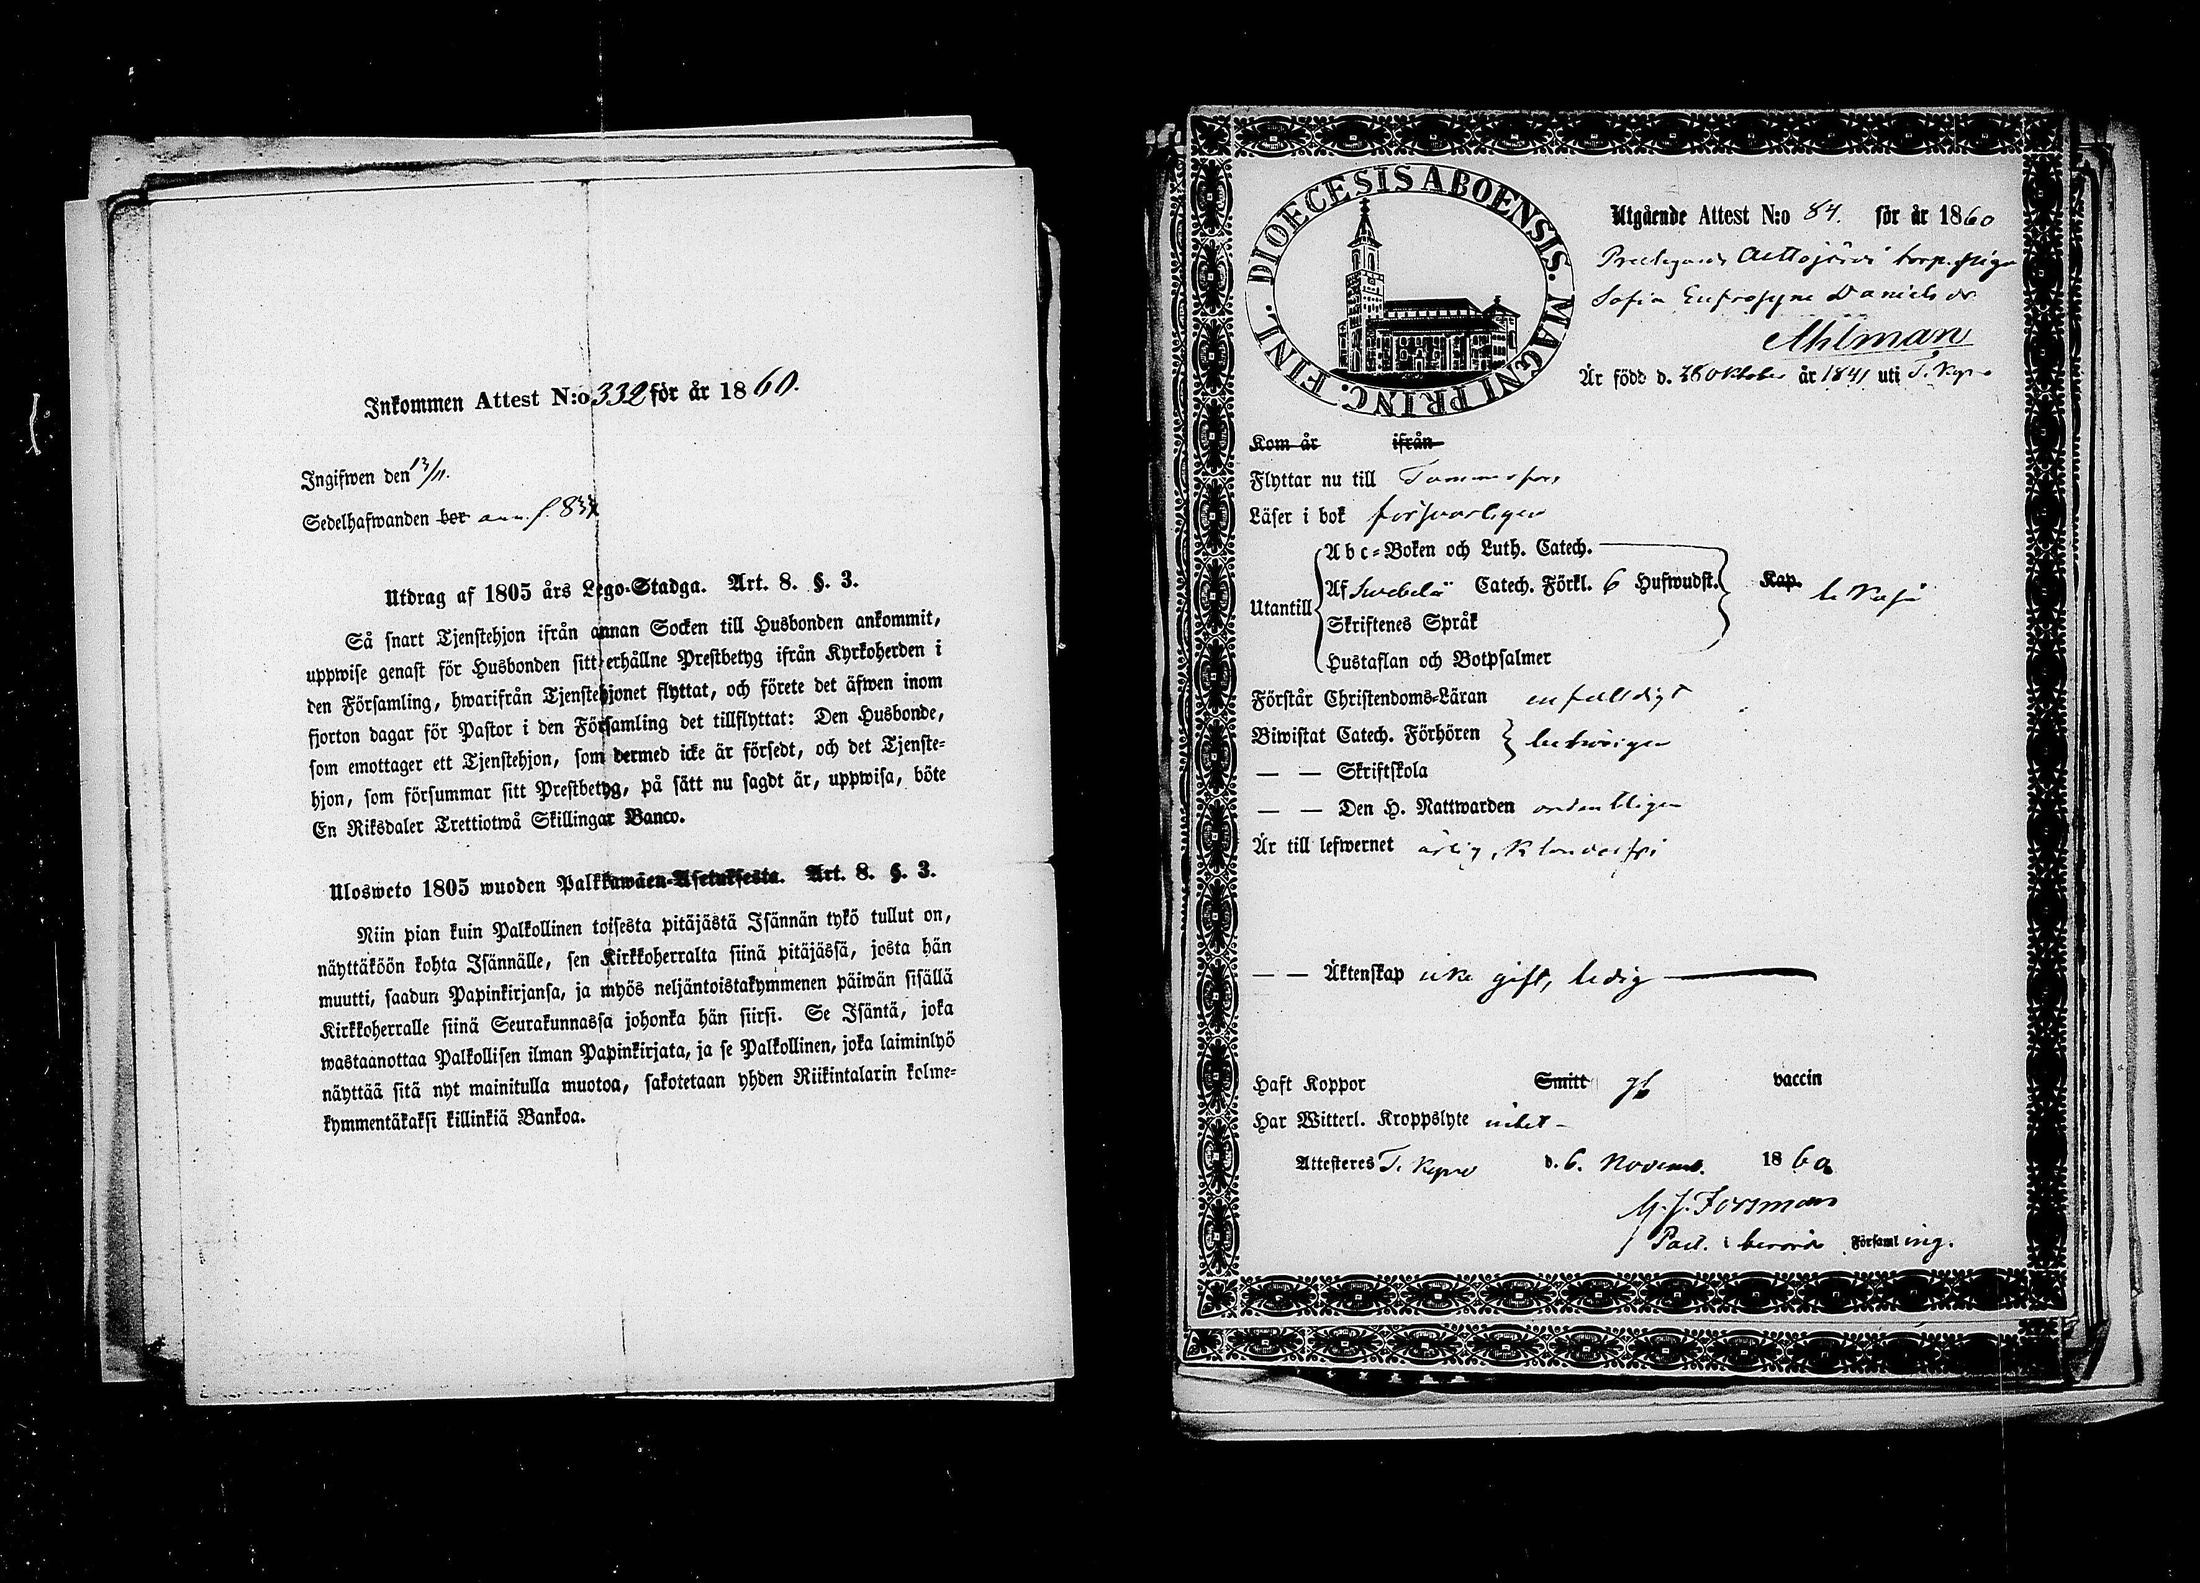 Inkommen Attest N:o 332 för år 1860.
Ingifwen den 13/11.
Sedelhafwanden bor ann. f. 837
Utdrag af 1805 års Lego-Stadga. Art. 8. §. 3.
Så snart Tjenstehjon ifrån annan Socken till Husbonden ankommit,
uppwise genast för Husbonden sitt erhållne Prestbetyg ifrån Kyrkoherden i
den Församling, hwarifrån Tjenstehjonet flyttat, och förete det äfwen inom
fjorton dagar för Pastor i den Församling det tillflyttat: Den Husbonde,
som emottager ett Tjenstehjon, som dermed icke är försedt, och det Tjenste-
hjon, som försummar sitt Prestbetyg, på sätt nu sagdt är, uppwisa, böte
En Riksdaler Trettiotwå Skillingar Banco.
Ulosweto 1805 wuoden Palkkawäen-Asetuksesta. Art. 8. §. 3.
Niin pian kuin Palkollinen toisesta pitäjästä Isännän tykö tullut on,
näyttäköön kohta Isännälle, sen Kirkkoherralta siinä pitäjässä, josta hän
muutti, saadun Papinkirjansa, ja myös neljäntoistakymmenen päiwän sisällä
Kirkkoherralle siinä Seurakunnassa johonka hän siirsi. Se Isäntä, joka
wastaanottaa Palkollisen ilman Papinkirjata, ja se Palkollinen, joka laiminlyö
näyttää sitä nyt mainitulla muotoa, sakotetaan yhden Riikintalarin kolme-
kymmentäkaksi killinkiä Bankoa.
DIOECESIS ABOENSIS. MAGNI PRINC. FINL.
Utgående Attest N:o 84. för år 1860
Aettojärvi torp. piga
Sofia Eufrosyne Daniels dr
Ahlman
Är född d. 28 Oktober år 1841 uti T. Kyro
Kom år ifrån
Flyttar nu till Tammerfors
Läser i bok försvarligen
Abc-Boken och Luth. Catech.
Utantill Af Svebelii Catech. Förkl. 6 Hufwudst. Kap.
Skriftenes Språk
Hustaflan och Botpsalmer
Förstår Christendoms-Läran enfaldigt
Biwistat Catech. Förhören behörigen
— — Skriftskola
— — Den H. Nattwarden ordentligen
Är till lefwernet ärlig, klanderfri
— — Äktenskap icke gift, ledig
Haft Koppor Smitt vaccin
Har Witterl. Kroppslyte intet –
Attesteres T. Kyro d. 6. Novemb. 1860
M. J. Forsman
Past. i berörde Församling.